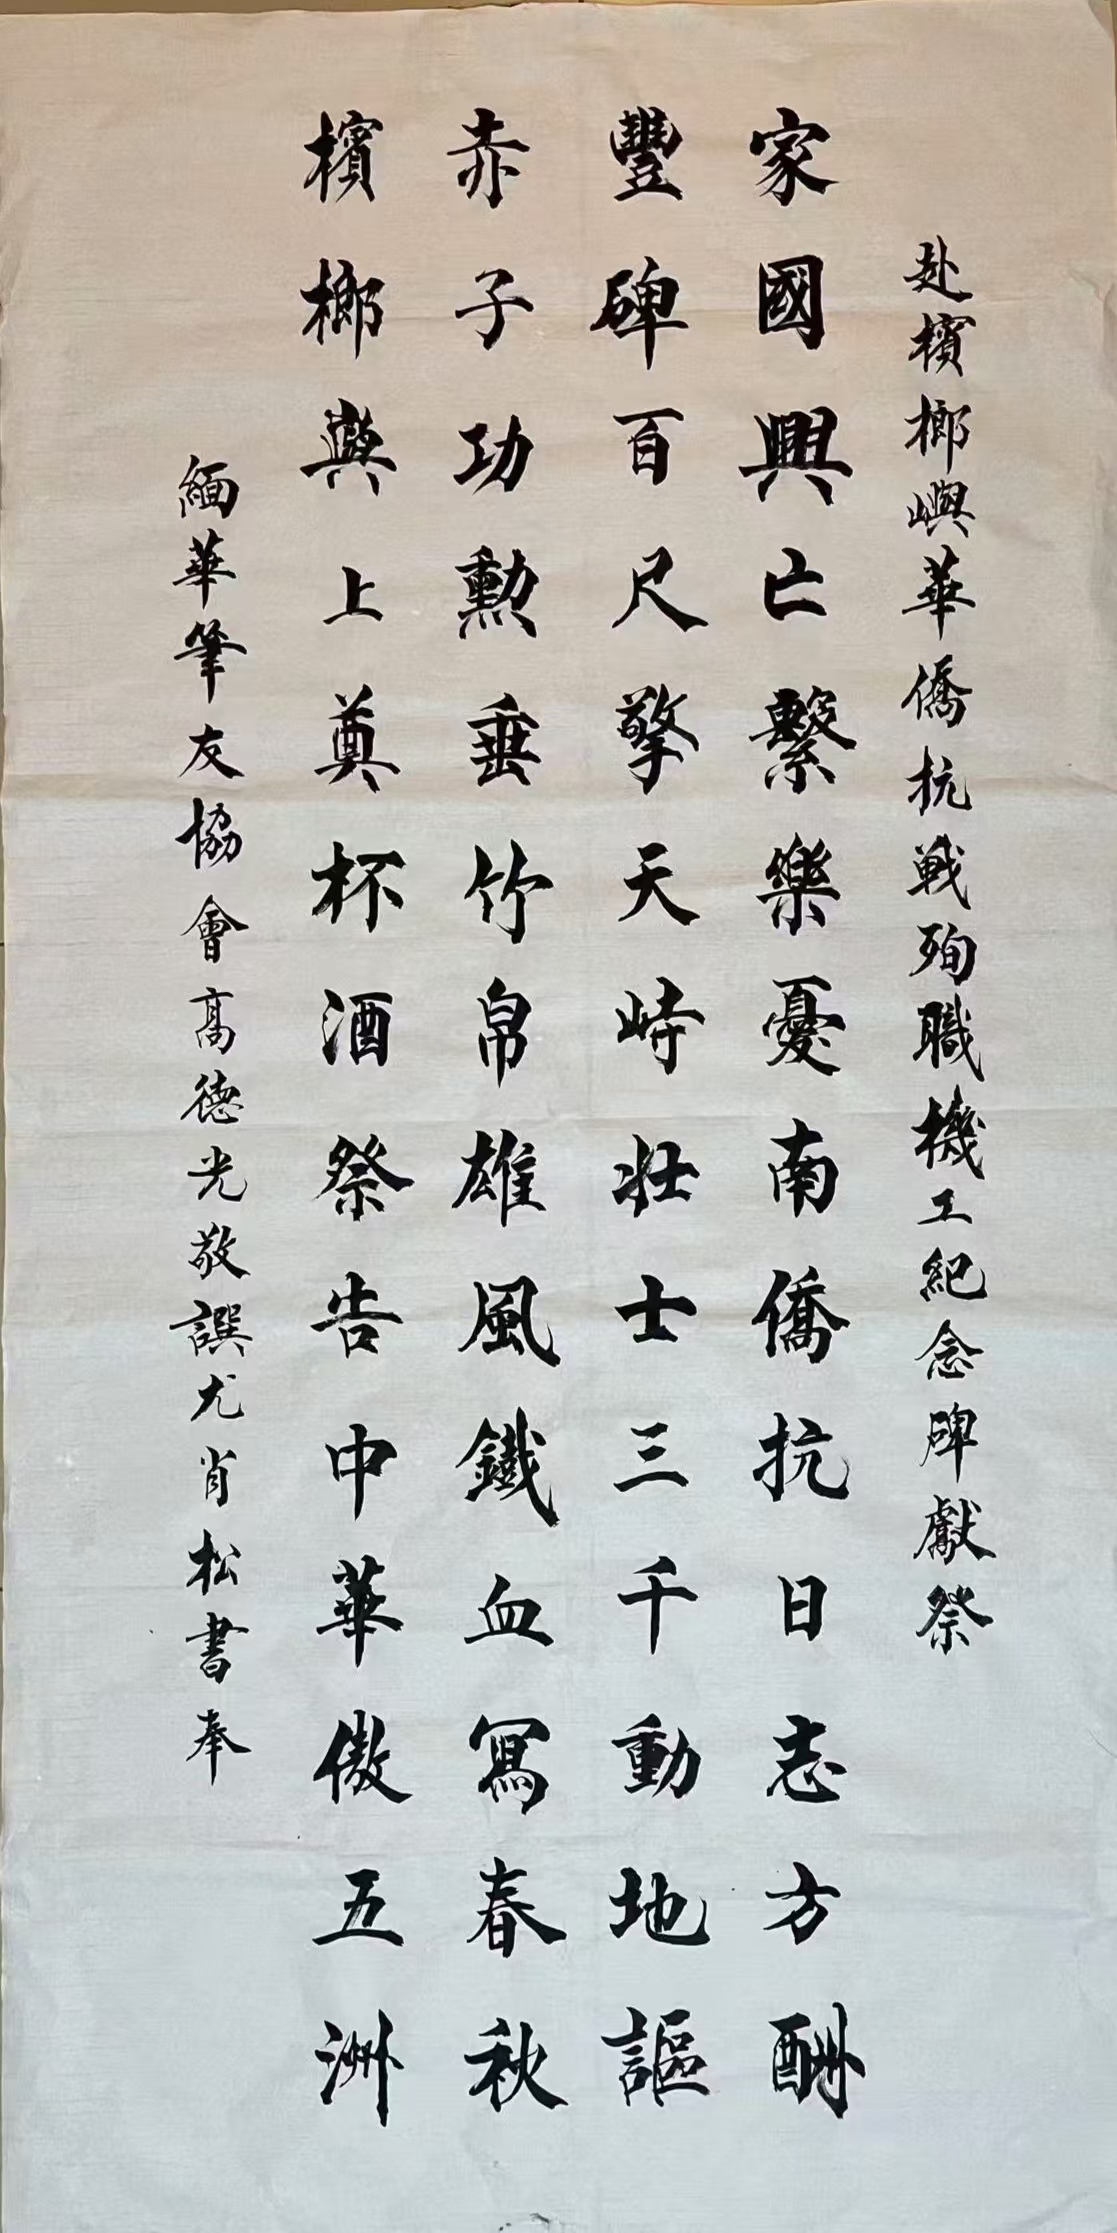 赴檳榔嶼華僑抗戦殉職機工紀念碑獻祭
家國興亡繫樂憂南僑抗日志方酬
豐碑百尺擎天峙壯士三千動地謳
赤子功勳垂竹帛雄風鐵血寫春秋
檳榔輿上奠杯酒祭告中華傲五洲
緬華筆友協會高德光敬譔尤肖松書奉